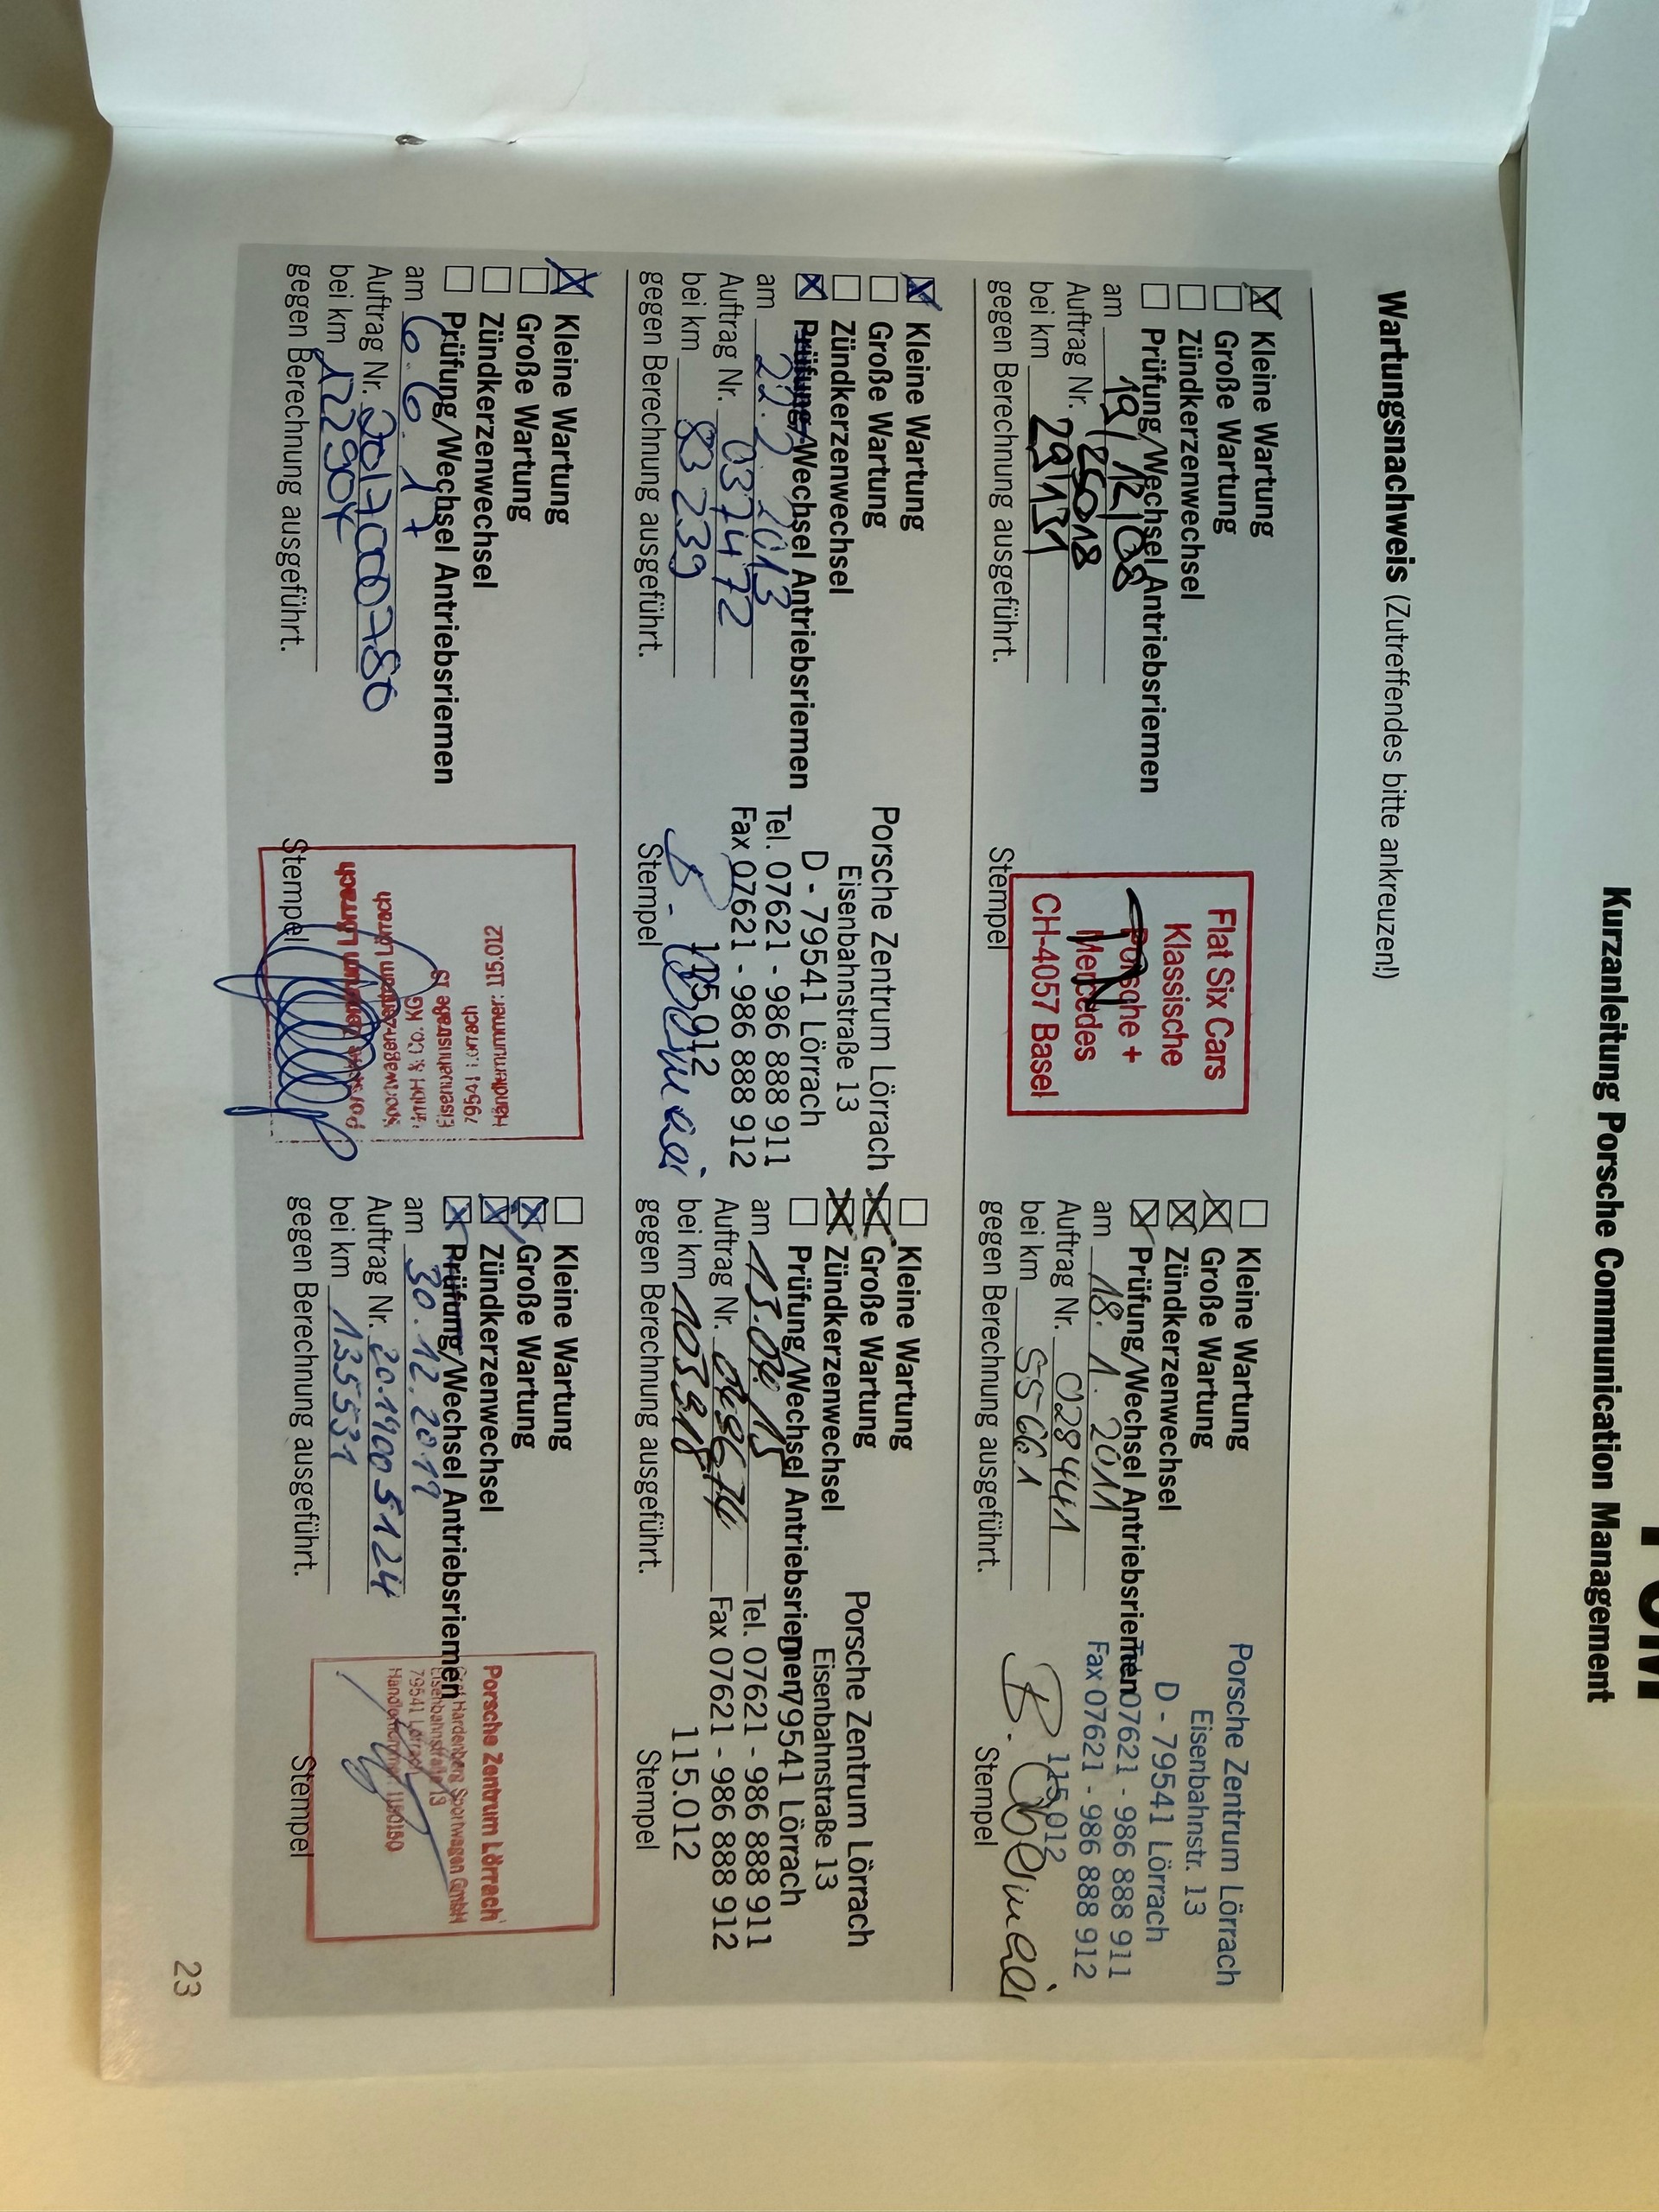 Kurzanleitung Porsche Communication Management
Wartungsnachweis (Zutreffendes bitte ankreuzen!)
Kleine Wartung
Große Wartung
Zündkerzenwechsel
Prüfung/Wechsel Antriebsriemen
am 19/12/08
Auftrag Nr. 25018
bei km 29131
gegen Berechnung ausgeführt.
Flat Six Cars
Klassische
Porsche +
Mercedes
CH-4057 Basel
Stempel
Kleine Wartung
Große Wartung
Zündkerzenwechsel
Prüfung/Wechsel Antriebsriemen
am 18. 1. 2011
Auftrag Nr. 028441
bei km 55661
gegen Berechnung ausgeführt.
Porsche Zentrum Lörrach
Eisenbahnstr. 13
D - 79541 Lörrach
Tel. 07621 - 986 888 911
Fax 07621 - 986 888 912
115.012
Stempel
Kleine Wartung
Große Wartung
Zündkerzenwechsel
Prüfung/Wechsel Antriebsriemen
am 22.2 2013
Auftrag Nr. 037472
bei km 83 239
gegen Berechnung ausgeführt.
Porsche Zentrum Lörrach
Eisenbahnstraße 13
D - 79541 Lörrach
Tel. 07621 - 986 888 911
Fax 07621 - 986 888 912
115.012
Stempel
Kleine Wartung
Große Wartung
Zündkerzenwechsel
Prüfung/Wechsel Antriebsriemen
am
Auftrag Nr.
bei km 103918
gegen Berechnung ausgeführt.
Porsche Zentrum Lörrach
Eisenbahnstraße 13
79541 Lörrach
Tel. 07621 - 986 888 911
Fax 07621 - 986 888 912
115.012
Stempel
Kleine Wartung
Große Wartung
Zündkerzenwechsel
Prüfung/Wechsel Antriebsriemen
am 6.6.17
Auftrag Nr. 2017000780
bei km 122904
gegen Berechnung ausgeführt.
Porsche Zentrum Lörrach
Sportwagenzentrum Lörrach
GmbH & Co. KG
Eisenbahnstraße 13
79541 Lörrach
Händlernummer: 115.012
Stempel
Kleine Wartung
Große Wartung
Zündkerzenwechsel
Prüfung/Wechsel Antriebsriemen
am 30.12.2019
Auftrag Nr. 2019005124
bei km 135531
gegen Berechnung ausgeführt.
Porsche Zentrum Lörrach
Graf Hardenberg Sportwagen GmbH
Eisenbahnstraße 13
79541 Lörrach
Händlernummer: 1150150
Stempel
23